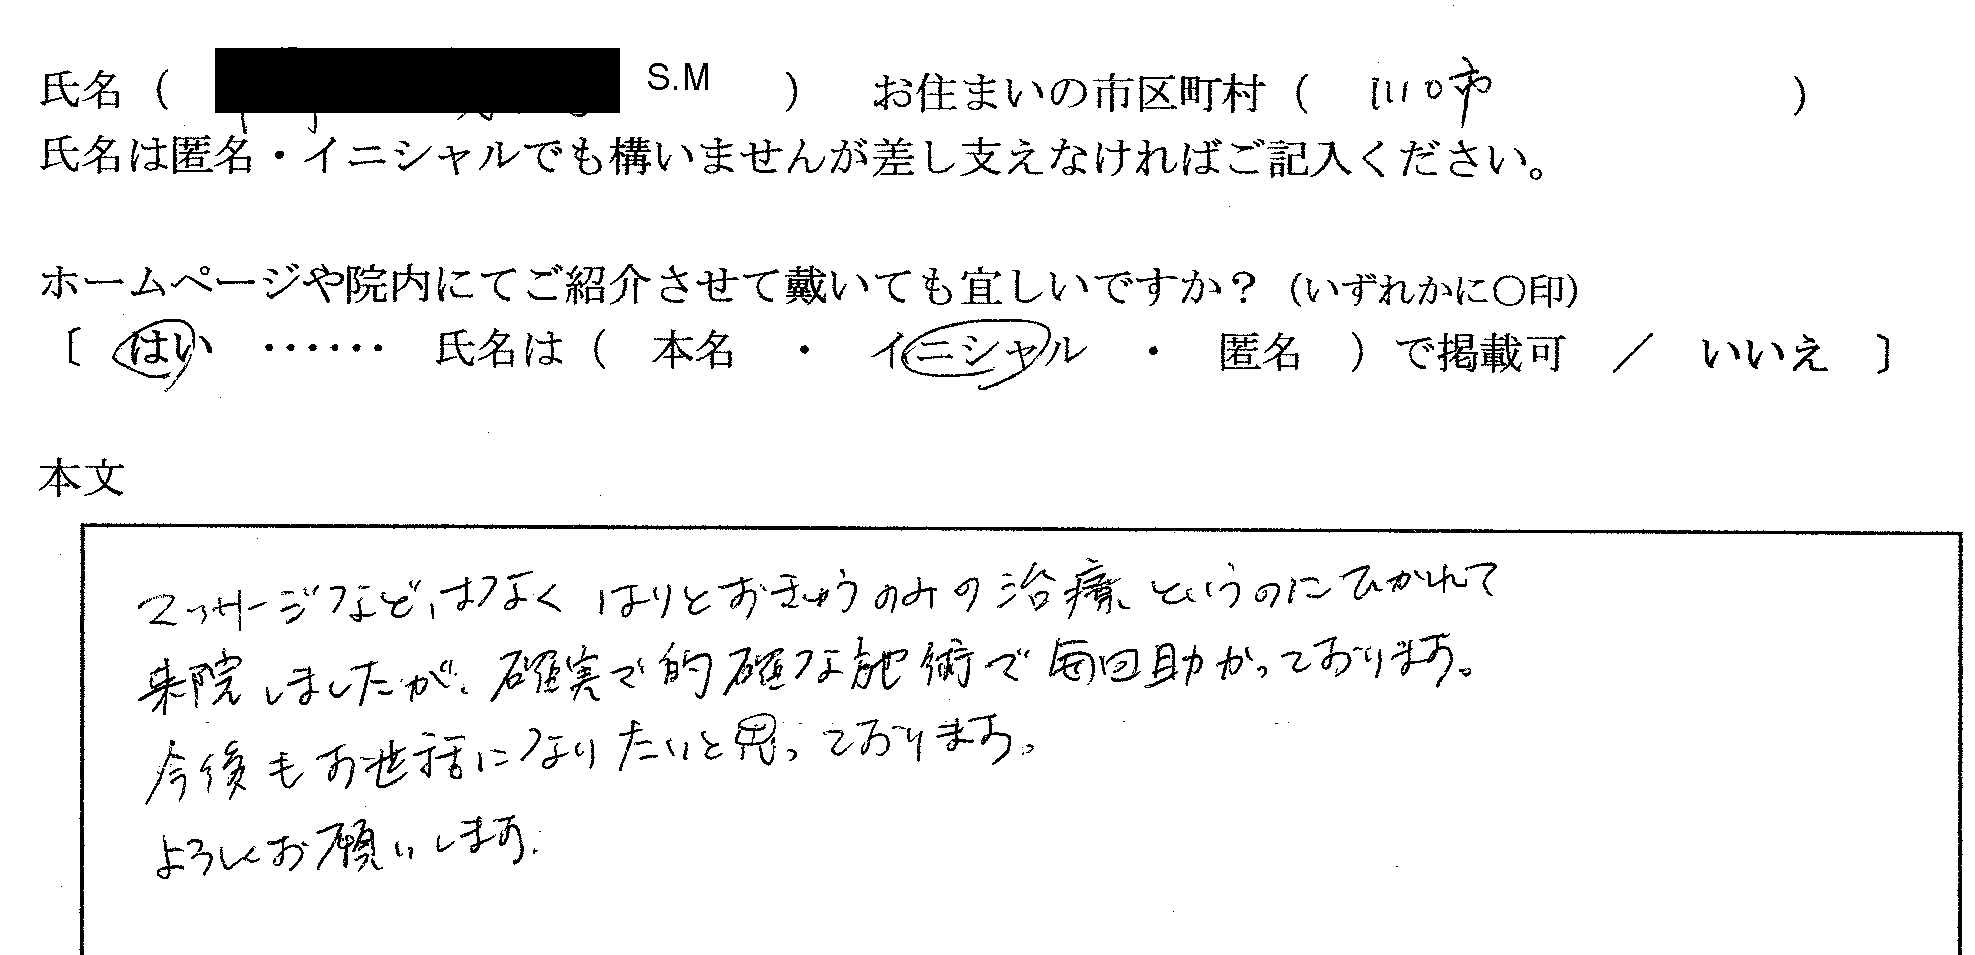 氏名（ S.M ） お住まいの市区町村（ 川口市 ）
氏名は匿名・イニシャルでも構いませんが差し支えなければご記入ください。
ホームページや院内にてご紹介させて戴いても宜しいですか？（いずれかに〇印）
〔 はい ‥‥‥ 氏名は（ 本名 ・ イニシャル ・ 匿名 ）で掲載可 ／ いいえ 〕
本文
マッサージなどはなく はりとおきゅうのみの治療、というのにひかれて
来院しましたが、確実で的確な施術で毎回助かっております。
今後もお世話になりたいと思っております。
よろしくお願いします。